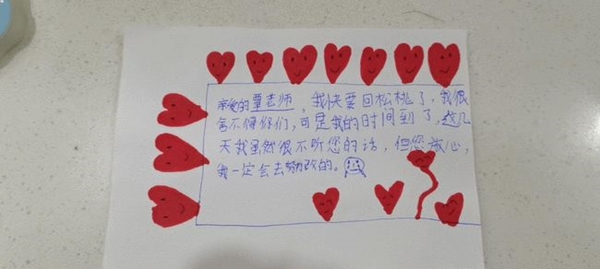 亲爱的覃老师，我快要回松桃了，我很
舍不得你们，可是我的时间到了，这几
天我虽然很不听您的话，但您放心，
我一定会去改的。